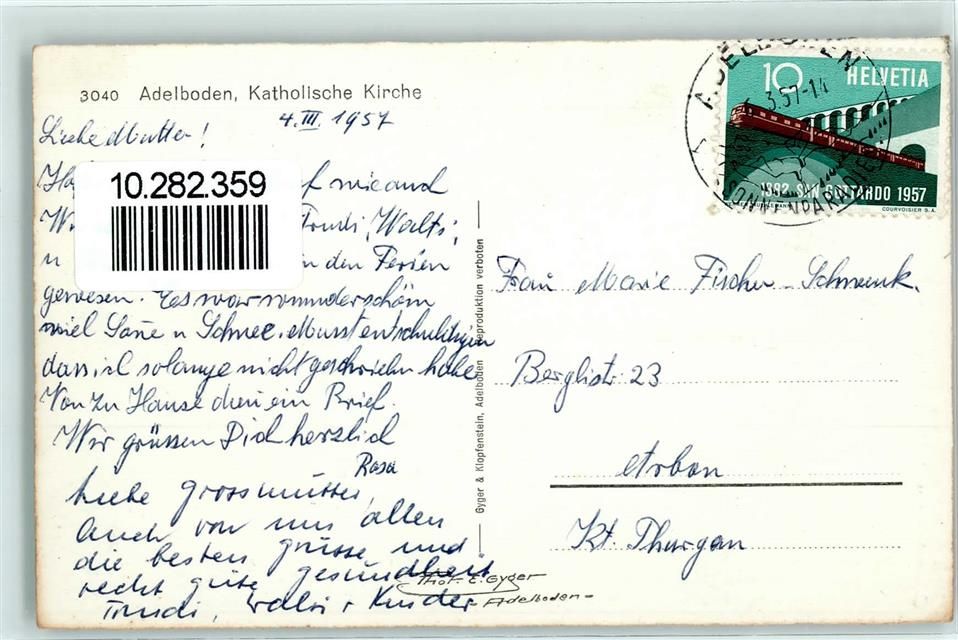 3040 Adelboden, Katholische Kirche
4. III. 1957
Liebe Mutter!
10.282.359
Trudi, Walti,
u in den Ferien
gewesen. Es war wunderschön
viel Sonne u Schnee. Musst entschuldigen
dass ich solange nicht geschrieben habe
Von zu Hause dann ein Brief.
Wir grüssen Dich herzlich
Rosa
Liebe Grossmutter,
Auch von uns allen
die besten Grüsse und
recht gute Gesundheit
Trudi, Walti + Kinder
Phot. E. Gyger
Adelboden
Gyger & Klopfenstein, Adelboden Reproduktion verboten
ADELBODEN
3.57-14
10 HELVETIA
1882 SAN GOTTARDO 1957
COURVOISIER S.A.
Frau Marie Fischer-Schwenk.
Berglistr. 23
Arbon
Kt. Thurgau